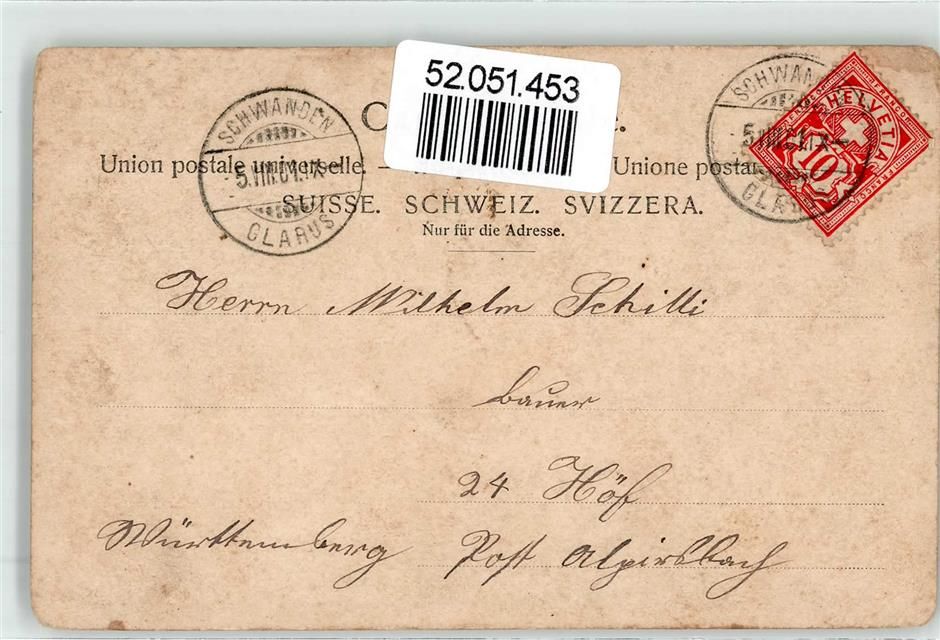 52.051.453
Union postale universelle. — Unione
SUISSE. SCHWEIZ. SVIZZERA.
Nur für die Adresse.
SCHWANDEN
5.VIII.01.IX
GLARUS
SCHWANDEN
5.VIII.01.IX—
GLARUS
HELVETIA
10
Herrn Wilhelm Schilli
Bauer
24 Höf
Württemberg Post Alpirsbach